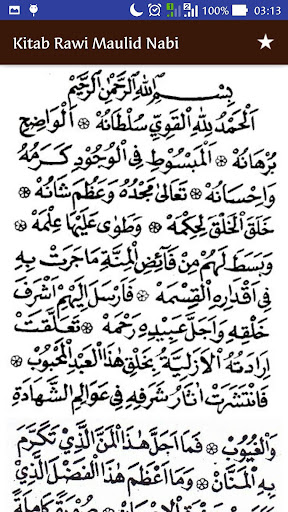 100% 03:13
Kitab Rawi Maulid Nabi
بِسْمِ اللهِ الرَّحْمٰنِ الرَّحِيْمِ
اَلْحَمْدُ لِلّٰهِ الْقَوِيِّ سُلْطَانُهُ ۞ اَلْوَاضِحِ
بُرْهَانُهُ ۞ اَلْمَبْسُوْطِ فِى الْوُجُوْدِ كَرَمُهُ
وَاِحْسَانُهُ ۞ تَعَالٰى مَجْدُهُ وَعَظُمَ شَانُهُ ۞
خَلَقَ الْخَلْقَ لِحِكْمَهْ ۞ وَطَوٰى عَلَيْهَا عِلْمَهْ ۞
وَبَسَطَ لَهُمْ مِنْ فَائِضِ الْمِنَّةِ مَاجَرَتْ بِهِ
فِى اَقْدَارِهِ الْقِسْمَهْ ۞ فَاَرْسَلَ اِلَيْهِمْ اَشْرَفَ
خَلْقِهِ وَاَجَلَّ عَبِيْدِهِ رَحْمَهْ ۞ تَعَلَّقَتْ
اِرَادَتُهُ الْاَزَلِيَّةُ بِخَلْقِ هٰذَا الْعَبْدِ الْمَحْبُوْبِ ۞
فَانْتَشَرَتْ اٰثَارُ شَرَفِهِ فِى عَوَالِمِ الشَّهَادَةِ
وَالْغُيُوْبِ ۞ فَمَا اَجَلَّ هٰذَا الْمَنَّ الَّذِيْ تَكَرَّمَ
بِهِ الْمَنَّانُ ۞ وَمَا اَعْظَمَ هٰذَا الْفَضْلَ الَّذِيْ